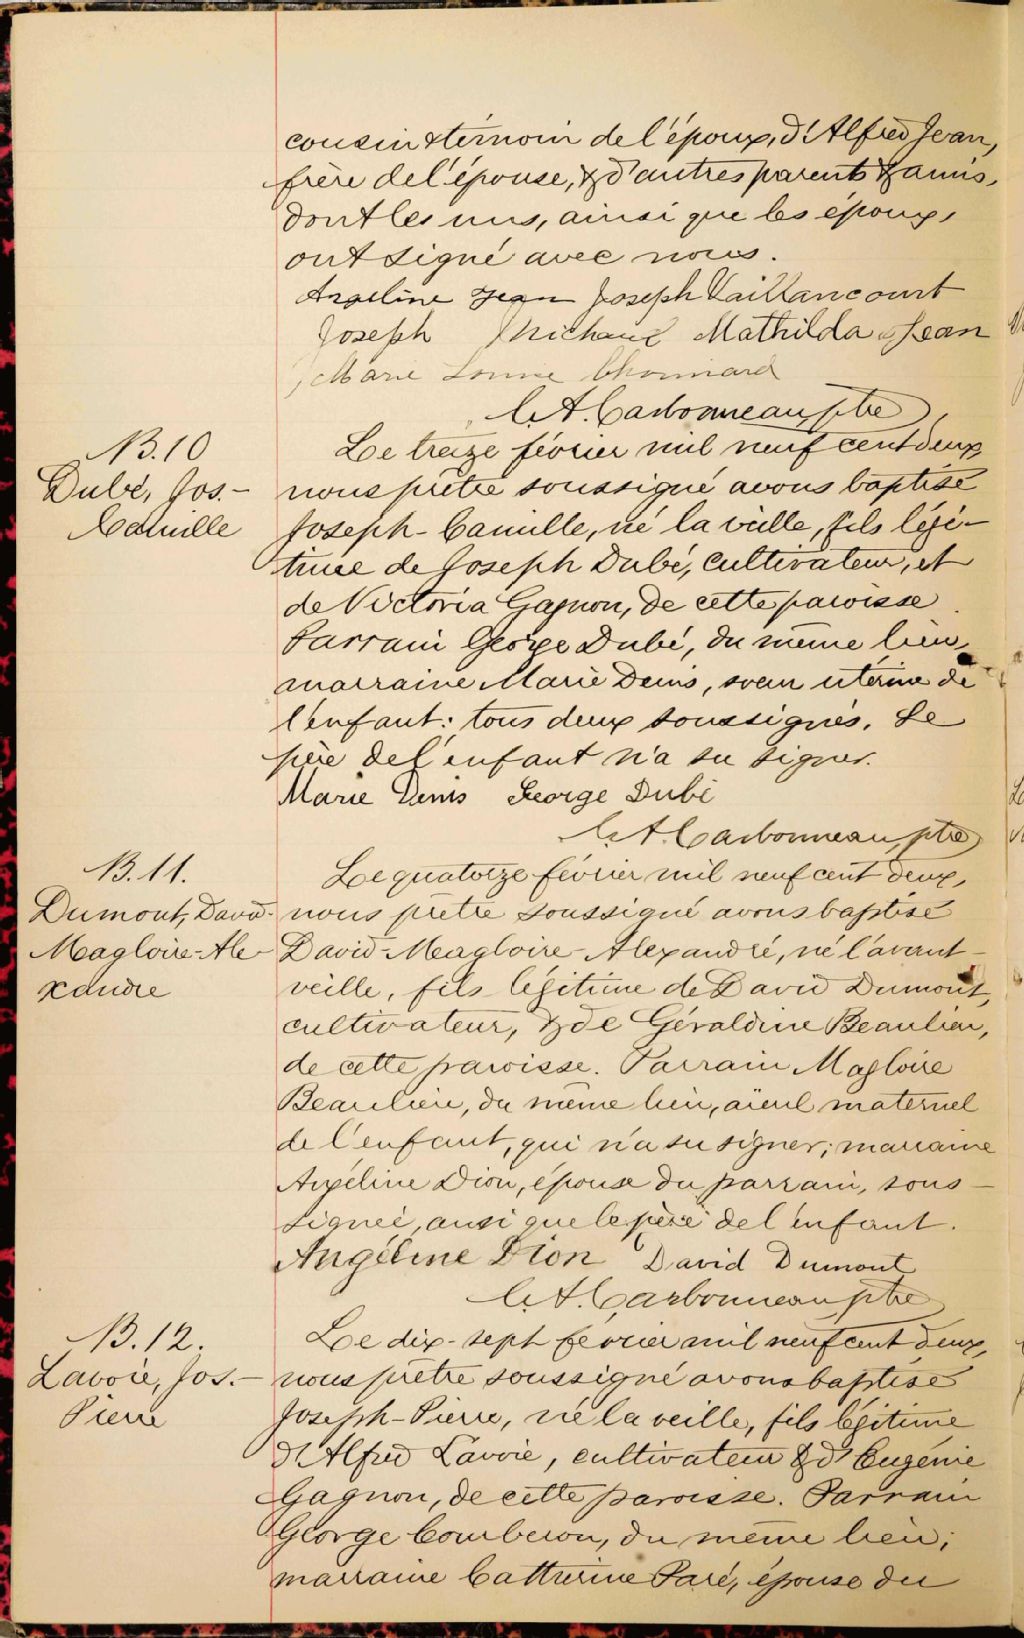 cousin & témoin de l'époux, d'Alfred Jean,
frère de l'épouse, & d'autres parents & amis,
dont les uns, ainsi que les époux,
ont signé avec nous.
Angéline Jean Joseph Vaillancourt
Joseph Michaud Mathilda Jean
Marie Louise Chouinard
C. A. Carbonneau, ptre
B. 10
Dubé, Jos.-
Camille
Le treize février mil neuf cent deux,
nous prêtre soussigné avons baptisé
Joseph-Camille, né la veille, fils légi-
time de Joseph Dubé, cultivateur, et
de Victoria Gagnon, de cette paroisse.
Parrain George Dubé, du même lieu,
marraine Marie Denis, sœur utérine de
l'enfant: tous deux soussignés. Le
père de l'enfant n'a su signer.
Marie Denis George Dubé
C. A. Carbonneau, ptre
B. 11.
Dumont, David-
Magloire-Ale-
xandre
Le quatorze février mil neuf cent deux,
nous prêtre soussigné avons baptisé
David-Magloire-Alexandre, né l'avant-
veille, fils légitime de David Dumont,
cultivateur, & de Géraldine Beaulieu,
de cette paroisse. Parrain Magloire
Beaulieu, du même lieu, aïeul maternel
de l'enfant, qui n'a su signer; marraine
Angéline Dion, épouse du parrain, sous-
signée, ainsi que le père de l'enfant.
Angéline Dion David Dumont
C. A. Carbonneau, ptre
B. 12.
Lavoie, Jos.-
Pierre
Le dix-sept février mil neuf cent deux,
nous prêtre soussigné avons baptisé
Joseph-Pierre, né la veille, fils légitime
d'Alfred Lavoie, cultivateur & d'Eugénie
Gagnon, de cette paroisse. Parrain
George Couberon, du même lieu;
marraine Catherine Paré, épouse du